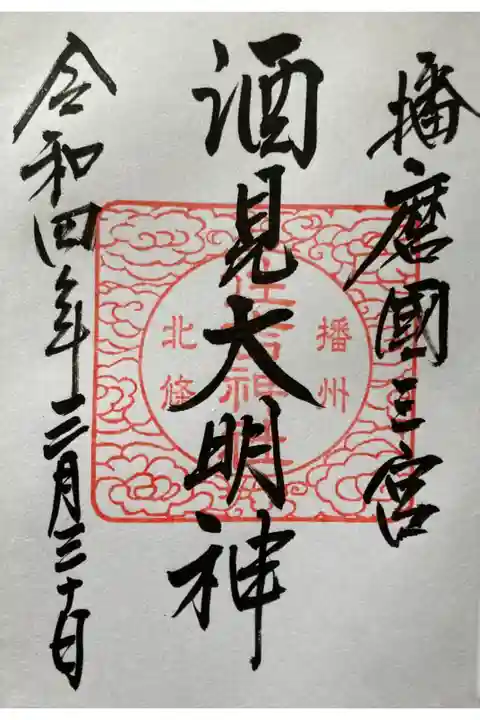 播磨國三宮
酒見大明神
令和四年三月三十日
播州
住吉神社
北條